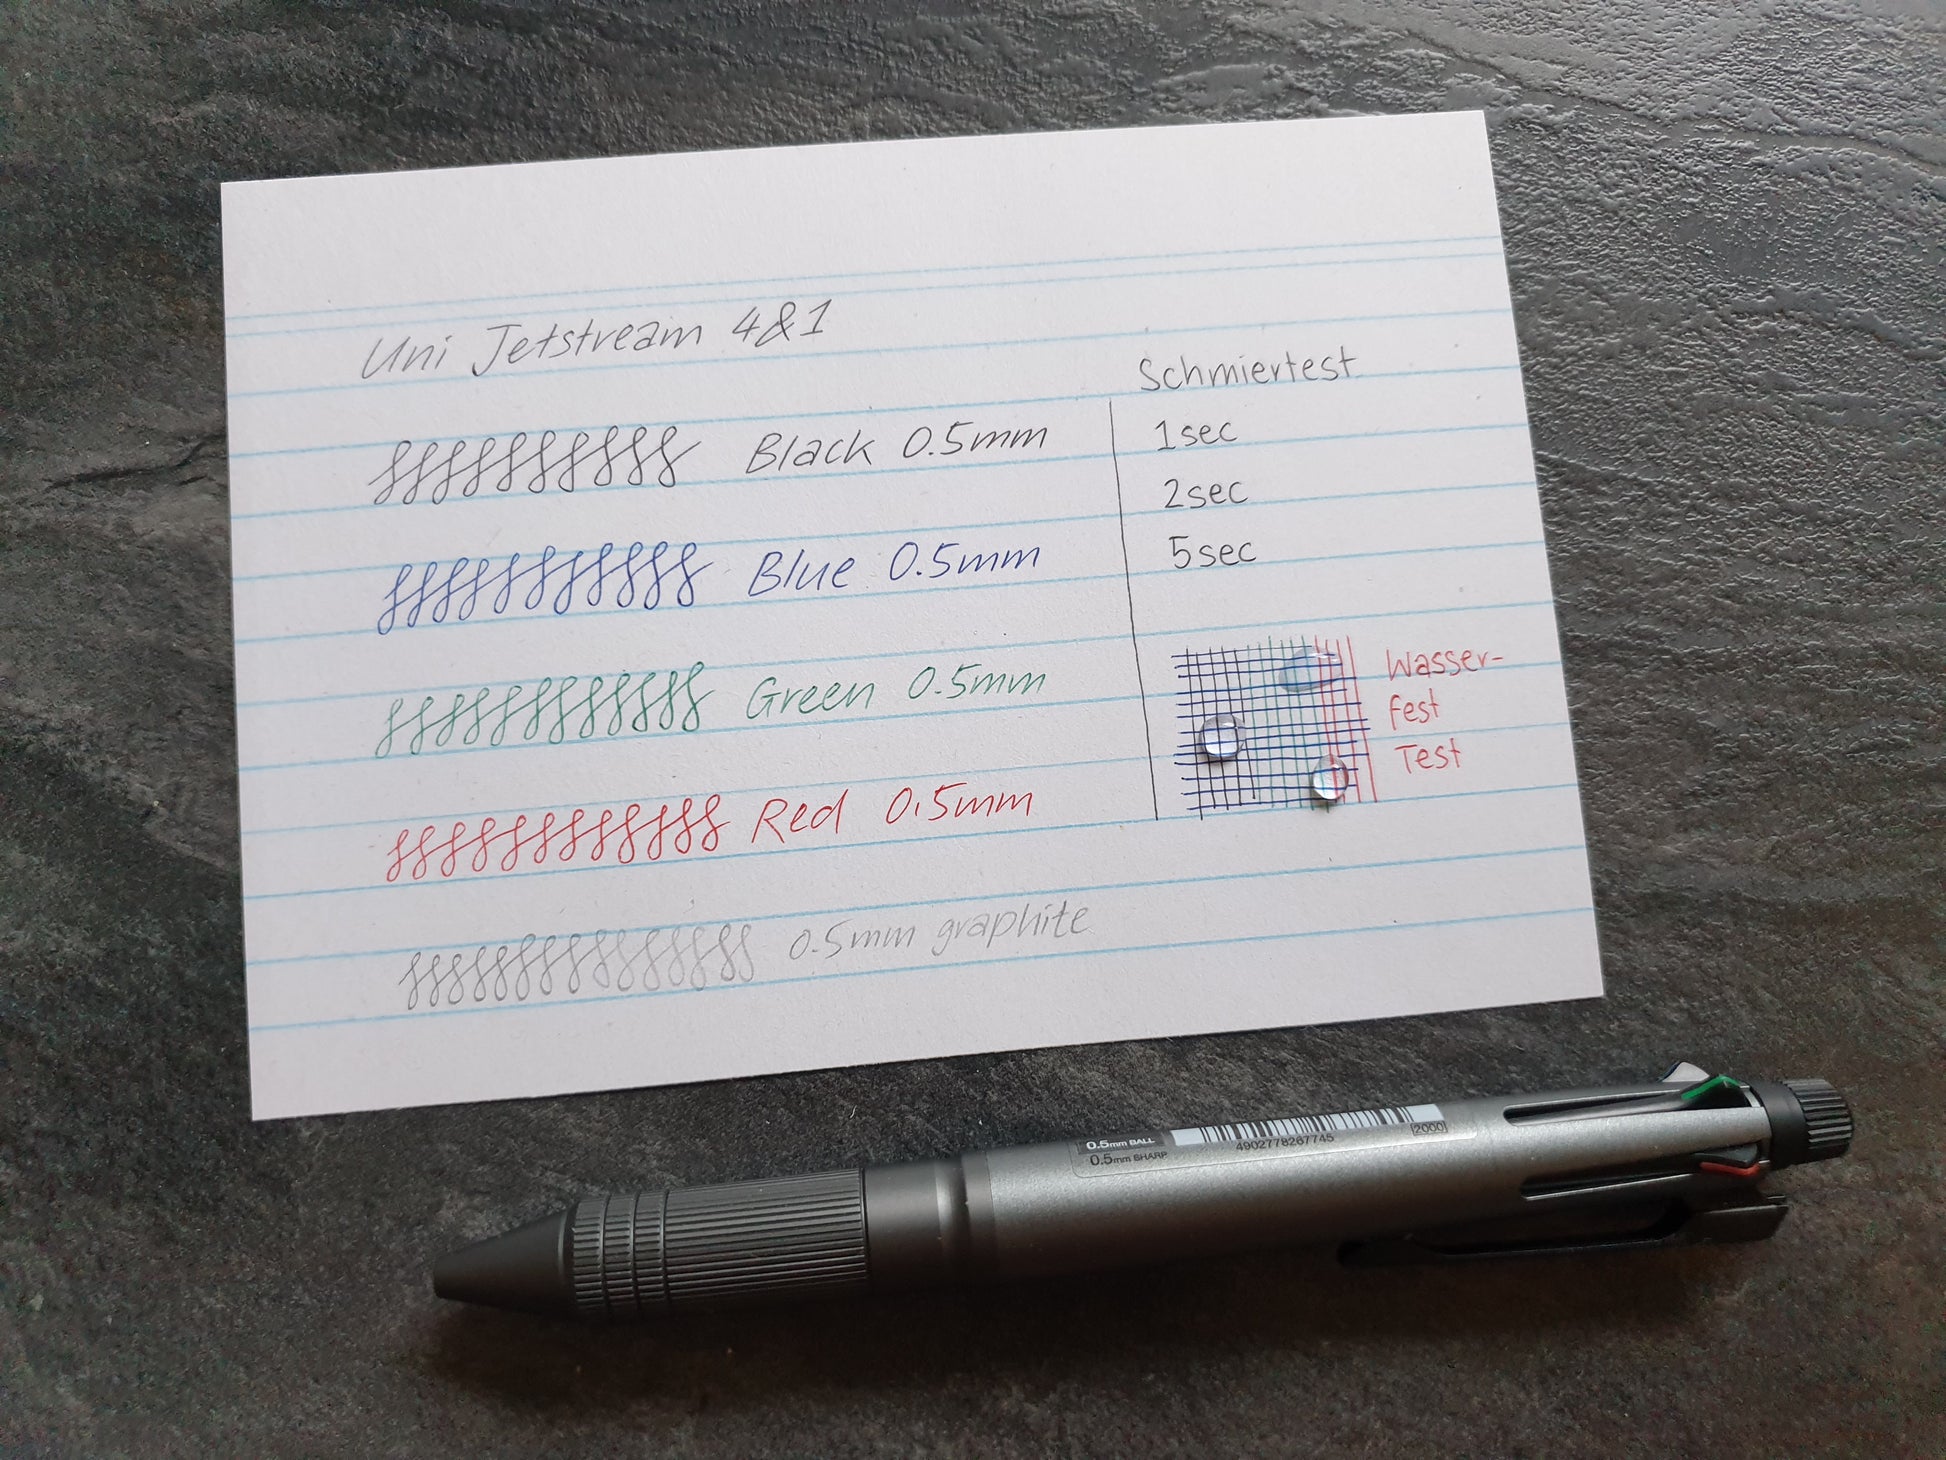 Uni Jetstream 4&1
Black 0.5mm
Blue 0.5mm
Green 0.5mm
Red 0.5mm
0.5mm graphite
Schmiertest
1sec
2sec
5sec
Wasser-
fest
Test
0.5mm BALL
0.5mm SHARP
4902778267745
2000